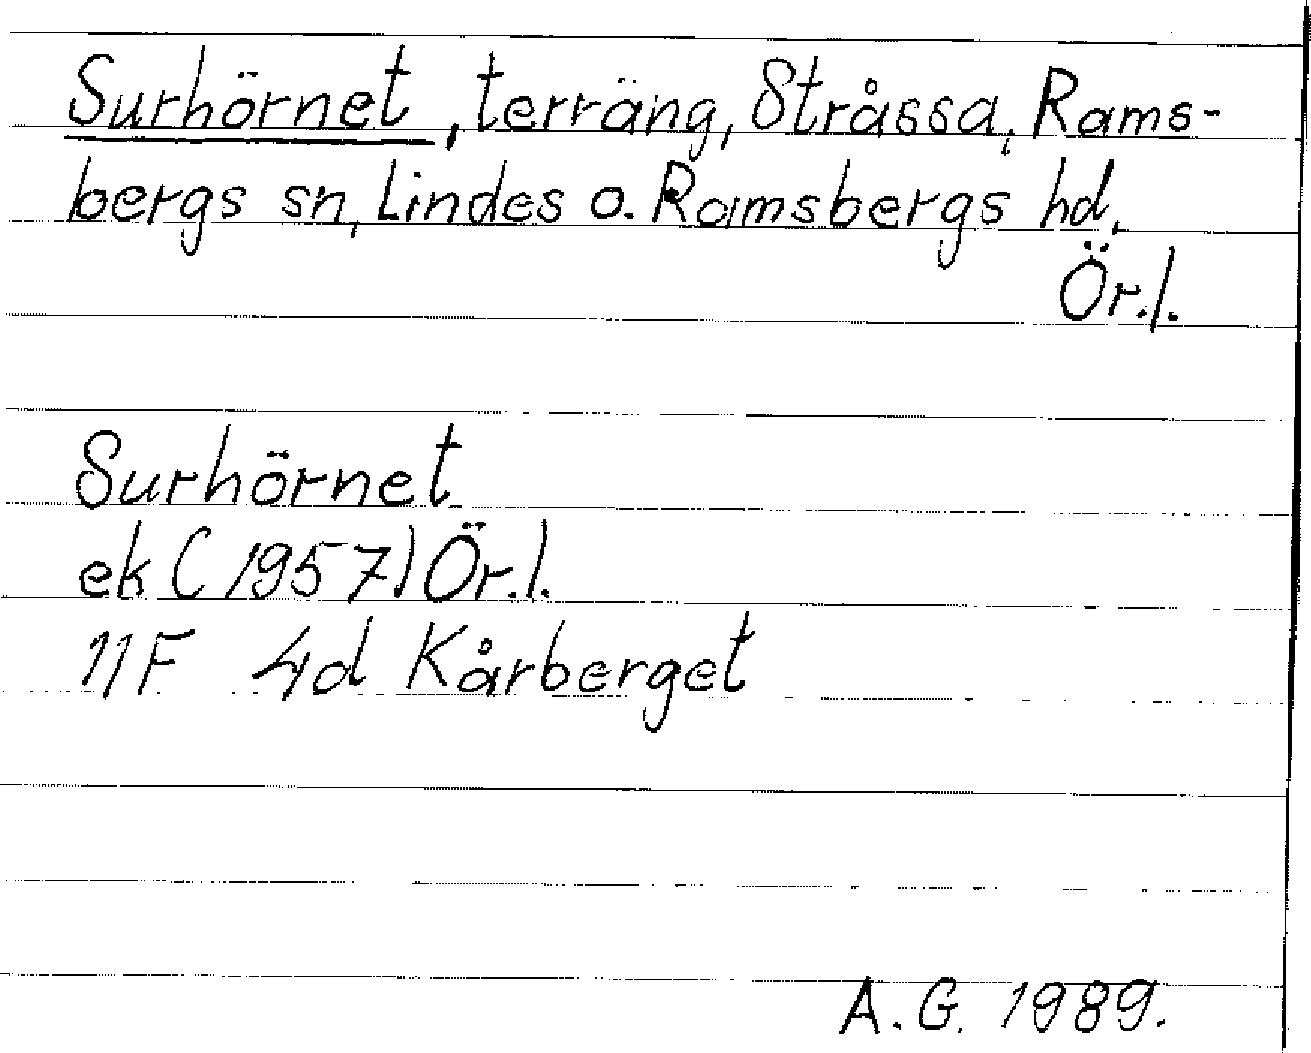 Surhörnet, terräng, Stråssa, Rams-
bergs sn, Lindes o. Ramsbergs hd,
Ör.l.
Surhörnet
ek (1957) Ör.l.
11F 4d Kårberget
A.G. 1989.